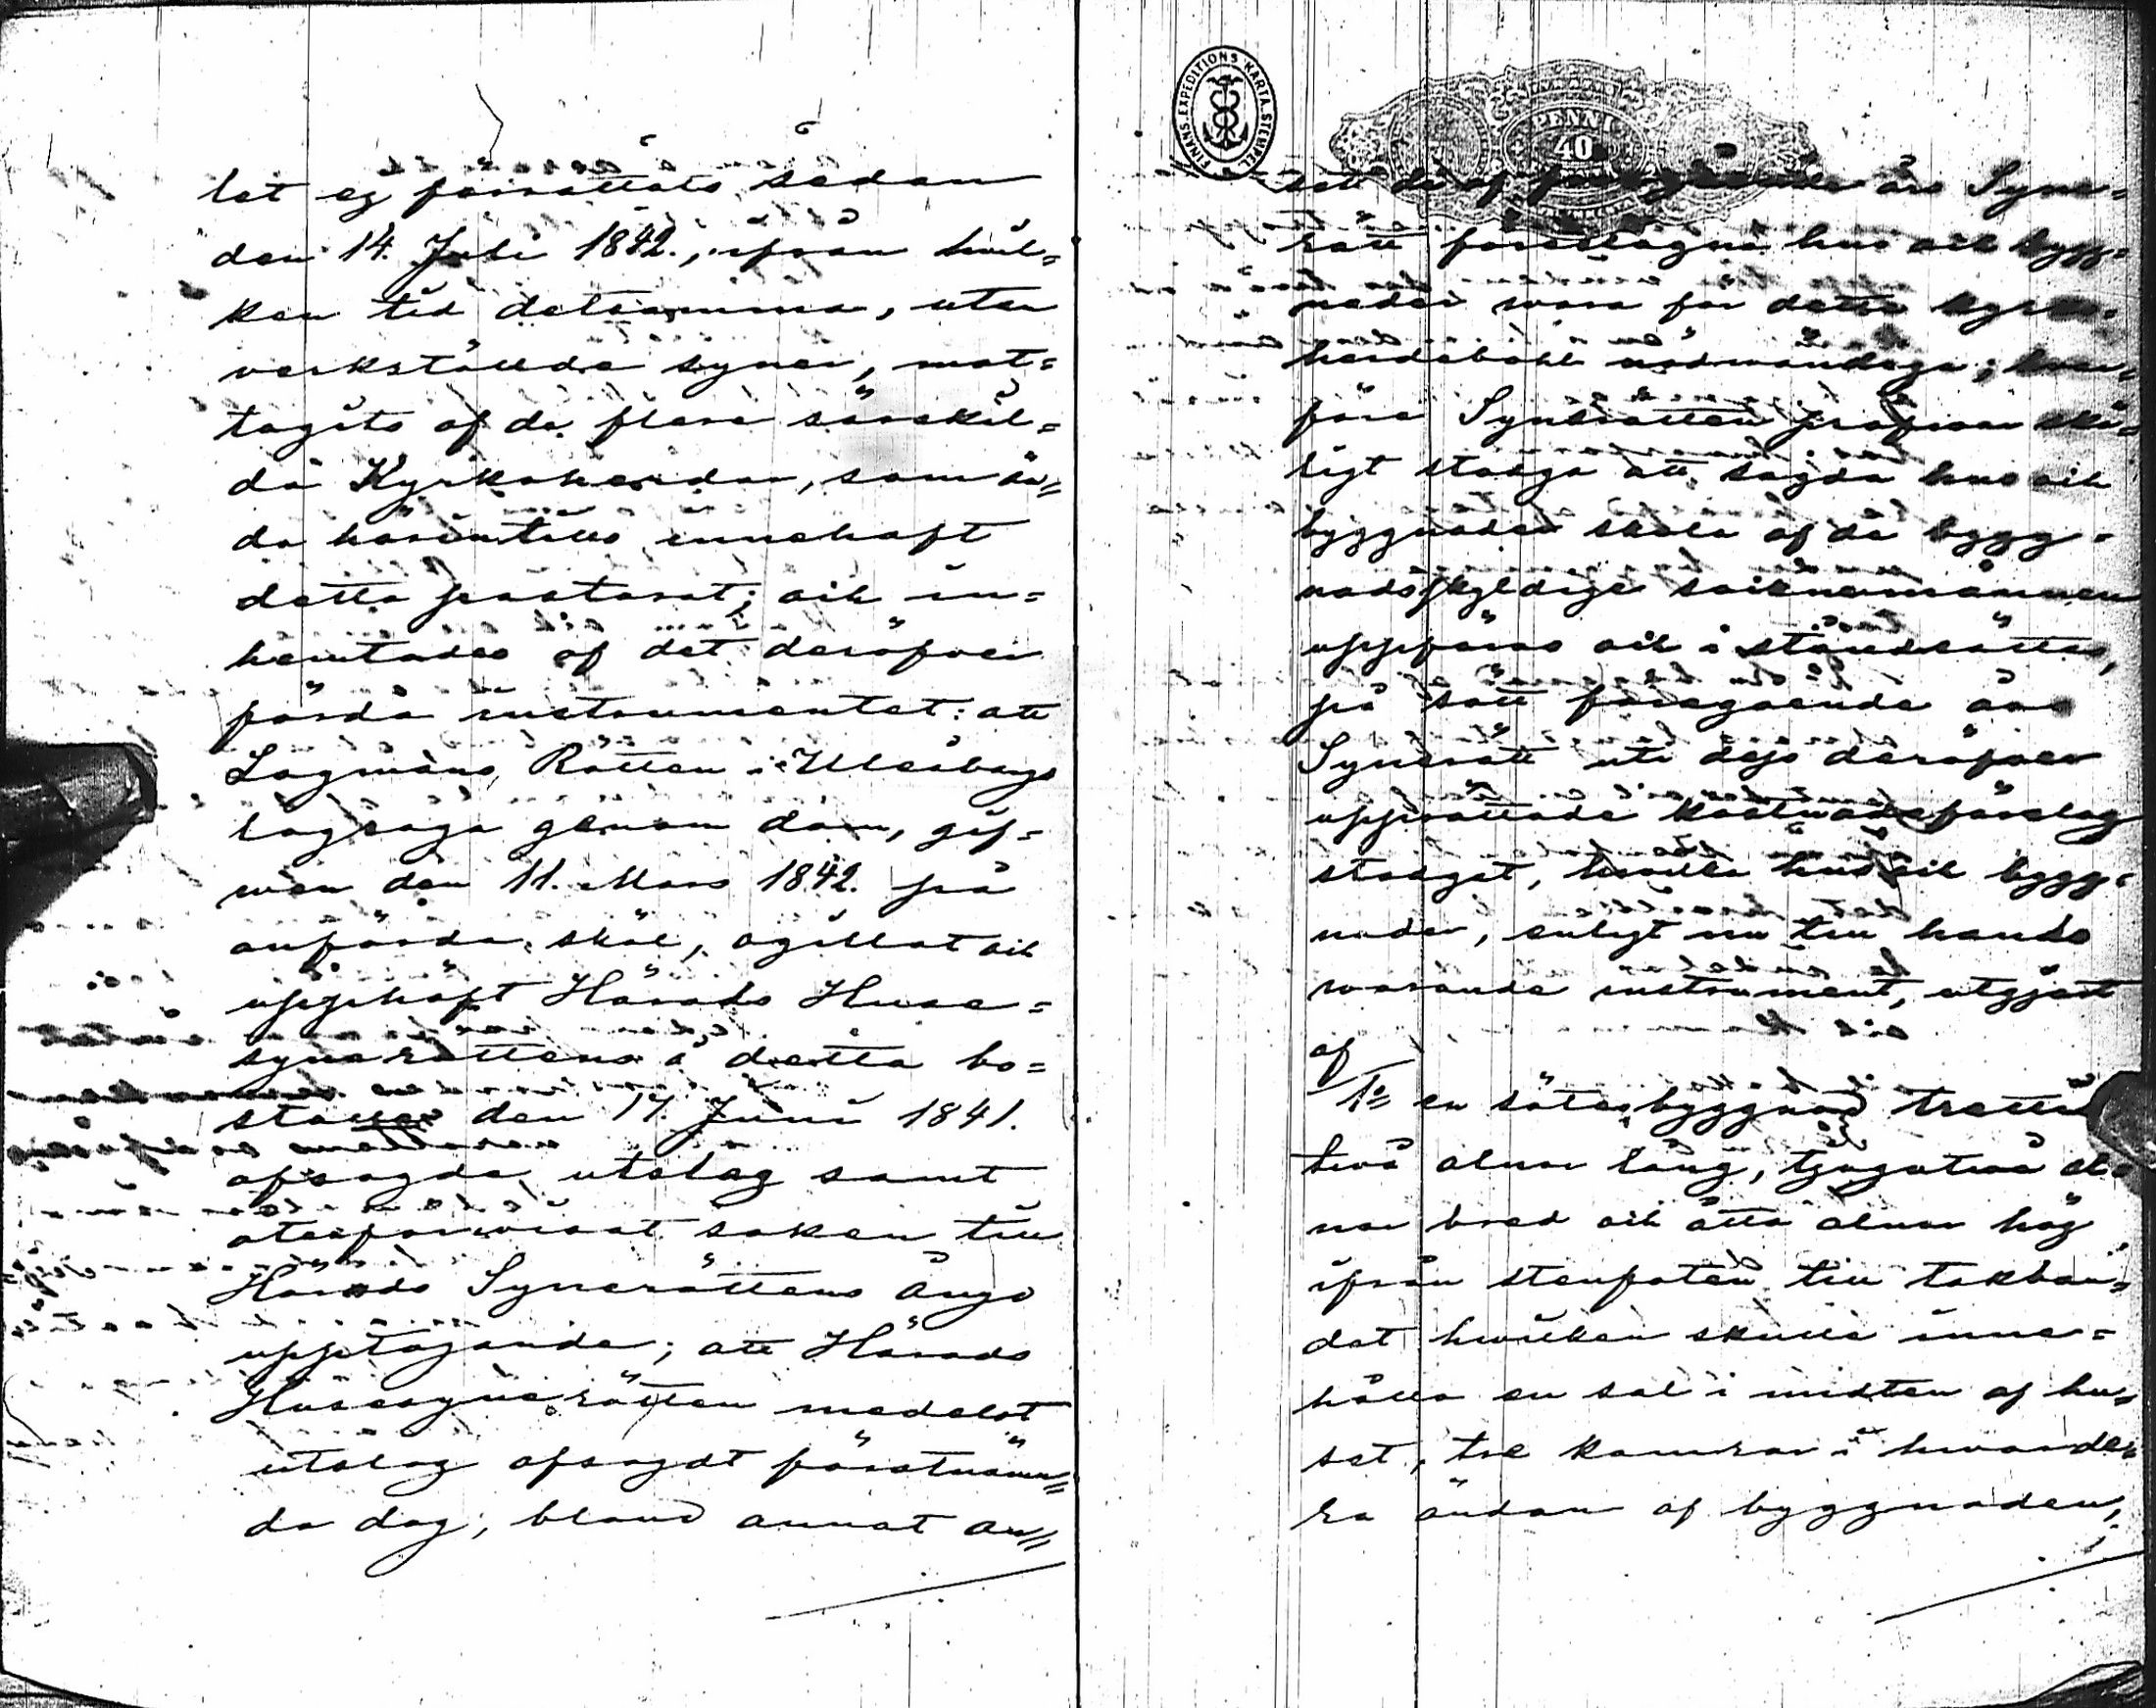 let ej förrättats sedan
den 14. Juli 1842., ifrån hvil=
ken tid detsamma, utan
verkstälde syner, mot=
tagits af de flere särskil=
da Kyrkoherdar, som så=
da härintills innehaft
detta pastorat; och in=
hemtades af det deröfver
förda instrumentet: att
Lagmans Rätten i Uleåborgs
lagsaga genom dom, gif=
wen den 11. Mars 1842. på
anförda skäl, ogillat och
upphäft Härads Huse=
syns rättens å detta bo=
ställe den 17. Juni 1841.
afsagda utslag samt
återförwisat saken till
Härads Synerättens ånyo
upptagande; att Härads
Husesyns rätten medelst
utslag afsagdt förstnämn=
da dag, bland annat an=
FINANS. EXPEDITIONS KARTA. STEMPEL
PENNI
40
sett de af föregående års Syne=
rätt föreslagna hus och bygg=
nader wara för detta kyrko=
herdebohl nödwändiga; hwar=
före Synerätten pröfwar skä=
ligt stadga att sagda hus och
byggnader skola af de bygg=
nadsskyldige socknemännen
uppföras och i ståndsättas,
på sätt föregående års
Synerätt uti dess deröfwer
upprättade kostnadsförslag
stadgat, hwilka hus och bygg=
nader, enligt nu till hands
warande instrument, utgjort
af
1o en sätesbyggnad trettio
twå alnar lång, tjugutwå al=
nar bred och åtta alnar hög
ifrån stenfoten till takban=
det hwilken skulle inne=
hålla en sal i midten af hu=
set, tre kamrar i hwarde=
ra ändan af byggnaden,